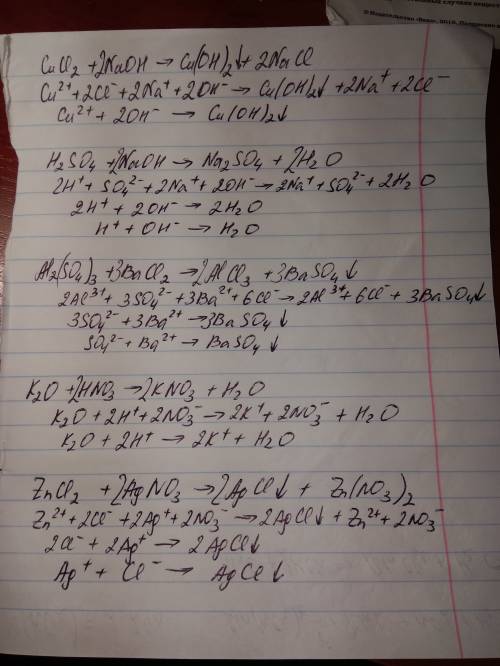 CuCl₂ + 2NaOH → Cu(OH)₂↓ + 2NaCl
Cu²⁺ + 2Cl⁻ + 2Na⁺ + 2OH⁻ → Cu(OH)₂↓ + 2Na⁺ + 2Cl⁻
Cu²⁺ + 2OH⁻ → Cu(OH)₂↓
H₂SO₄ + 2NaOH → Na₂SO₄ + 2H₂O
2H⁺ + SO₄²⁻ + 2Na⁺ + 2OH⁻ → 2Na⁺ + SO₄²⁻ + 2H₂O
2H⁺ + 2OH⁻ → 2H₂O
H⁺ + OH⁻ → H₂O
Al₂(SO₄)₃ + 3BaCl₂ → 2AlCl₃ + 3BaSO₄↓
2Al³⁺ + 3SO₄²⁻ + 3Ba²⁺ + 6Cl⁻ → 2Al³⁺ + 6Cl⁻ + 3BaSO₄↓
3SO₄²⁻ + 3Ba²⁺ → 3BaSO₄↓
SO₄²⁻ + Ba²⁺ → BaSO₄↓
K₂O + 2HNO₃ → 2KNO₃ + H₂O
K₂O + 2H⁺ + 2NO₃⁻ → 2K⁺ + 2NO₃⁻ + H₂O
K₂O + 2H⁺ → 2K⁺ + H₂O
ZnCl₂ + 2AgNO₃ → 2AgCl↓ + Zn(NO₃)₂
Zn²⁺ + 2Cl⁻ + 2Ag⁺ + 2NO₃⁻ → 2AgCl↓ + Zn²⁺ + 2NO₃⁻
2Cl⁻ + 2Ag⁺ → 2AgCl↓
Ag⁺ + Cl⁻ → AgCl↓